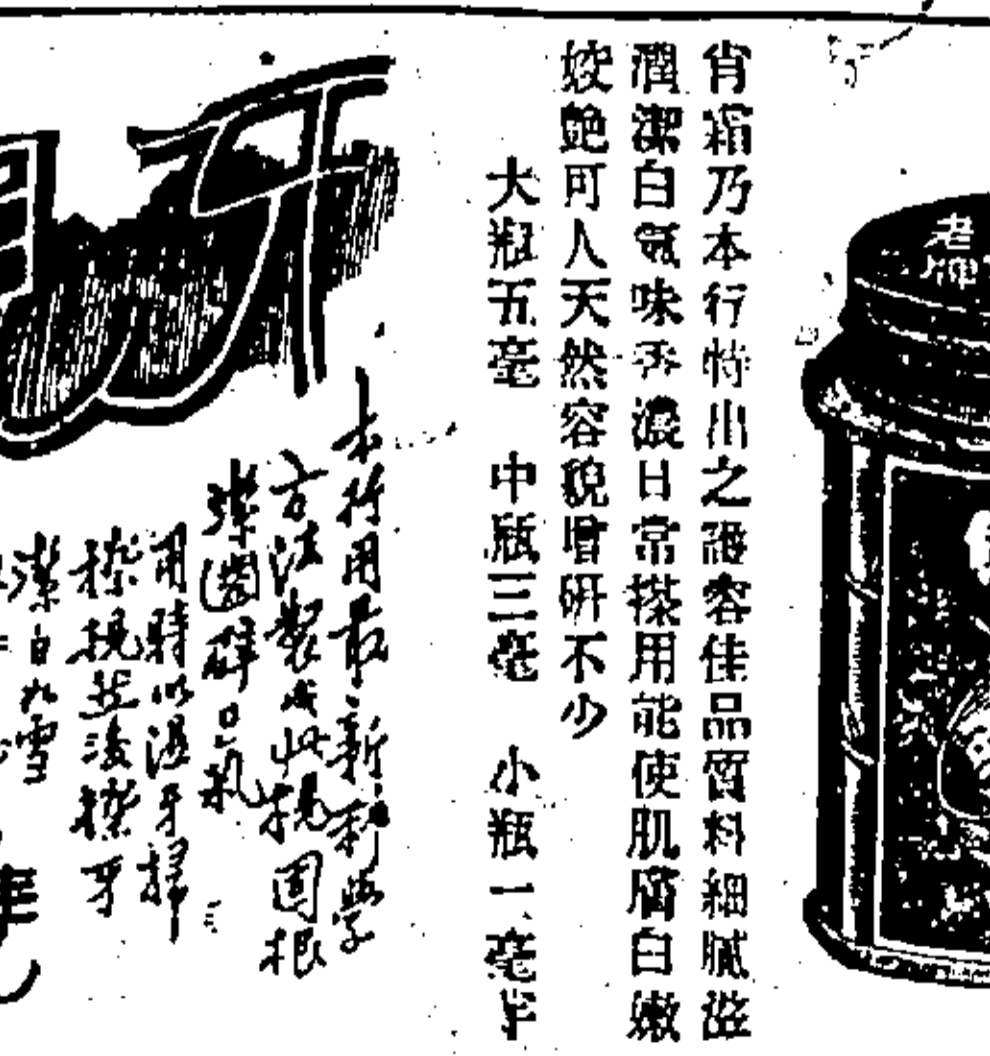 老牌
宵霜乃本行特出之護容佳品質料細膩滋
潤潔白氣味香濃日常搽用能使肌膚白嫩
姣艷可人天然容貌增姸不少
大瓶五毫 中瓶三毫 小瓶一毫半
牙
本行用最新科學
方法製成此梘固根
潔齒辟口氣
用時以濕牙掃
擦梘然後擦牙
潔白如雪